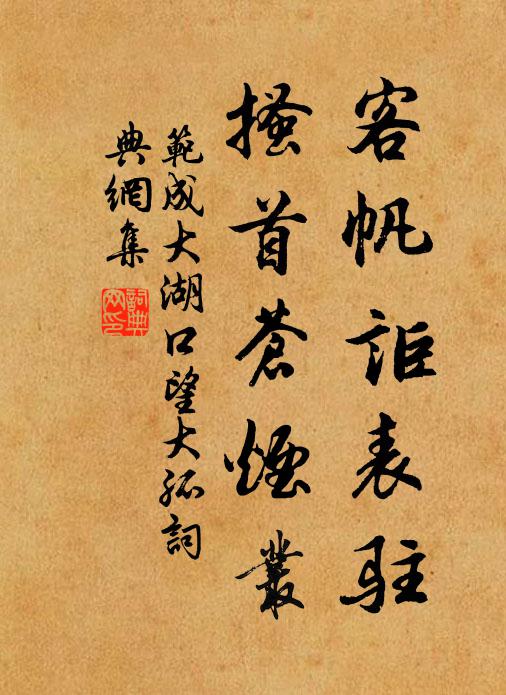 客帆詎表駐
搔首蒼煙叢
範成大湖口望大孤詞
典網集
詞典
网印